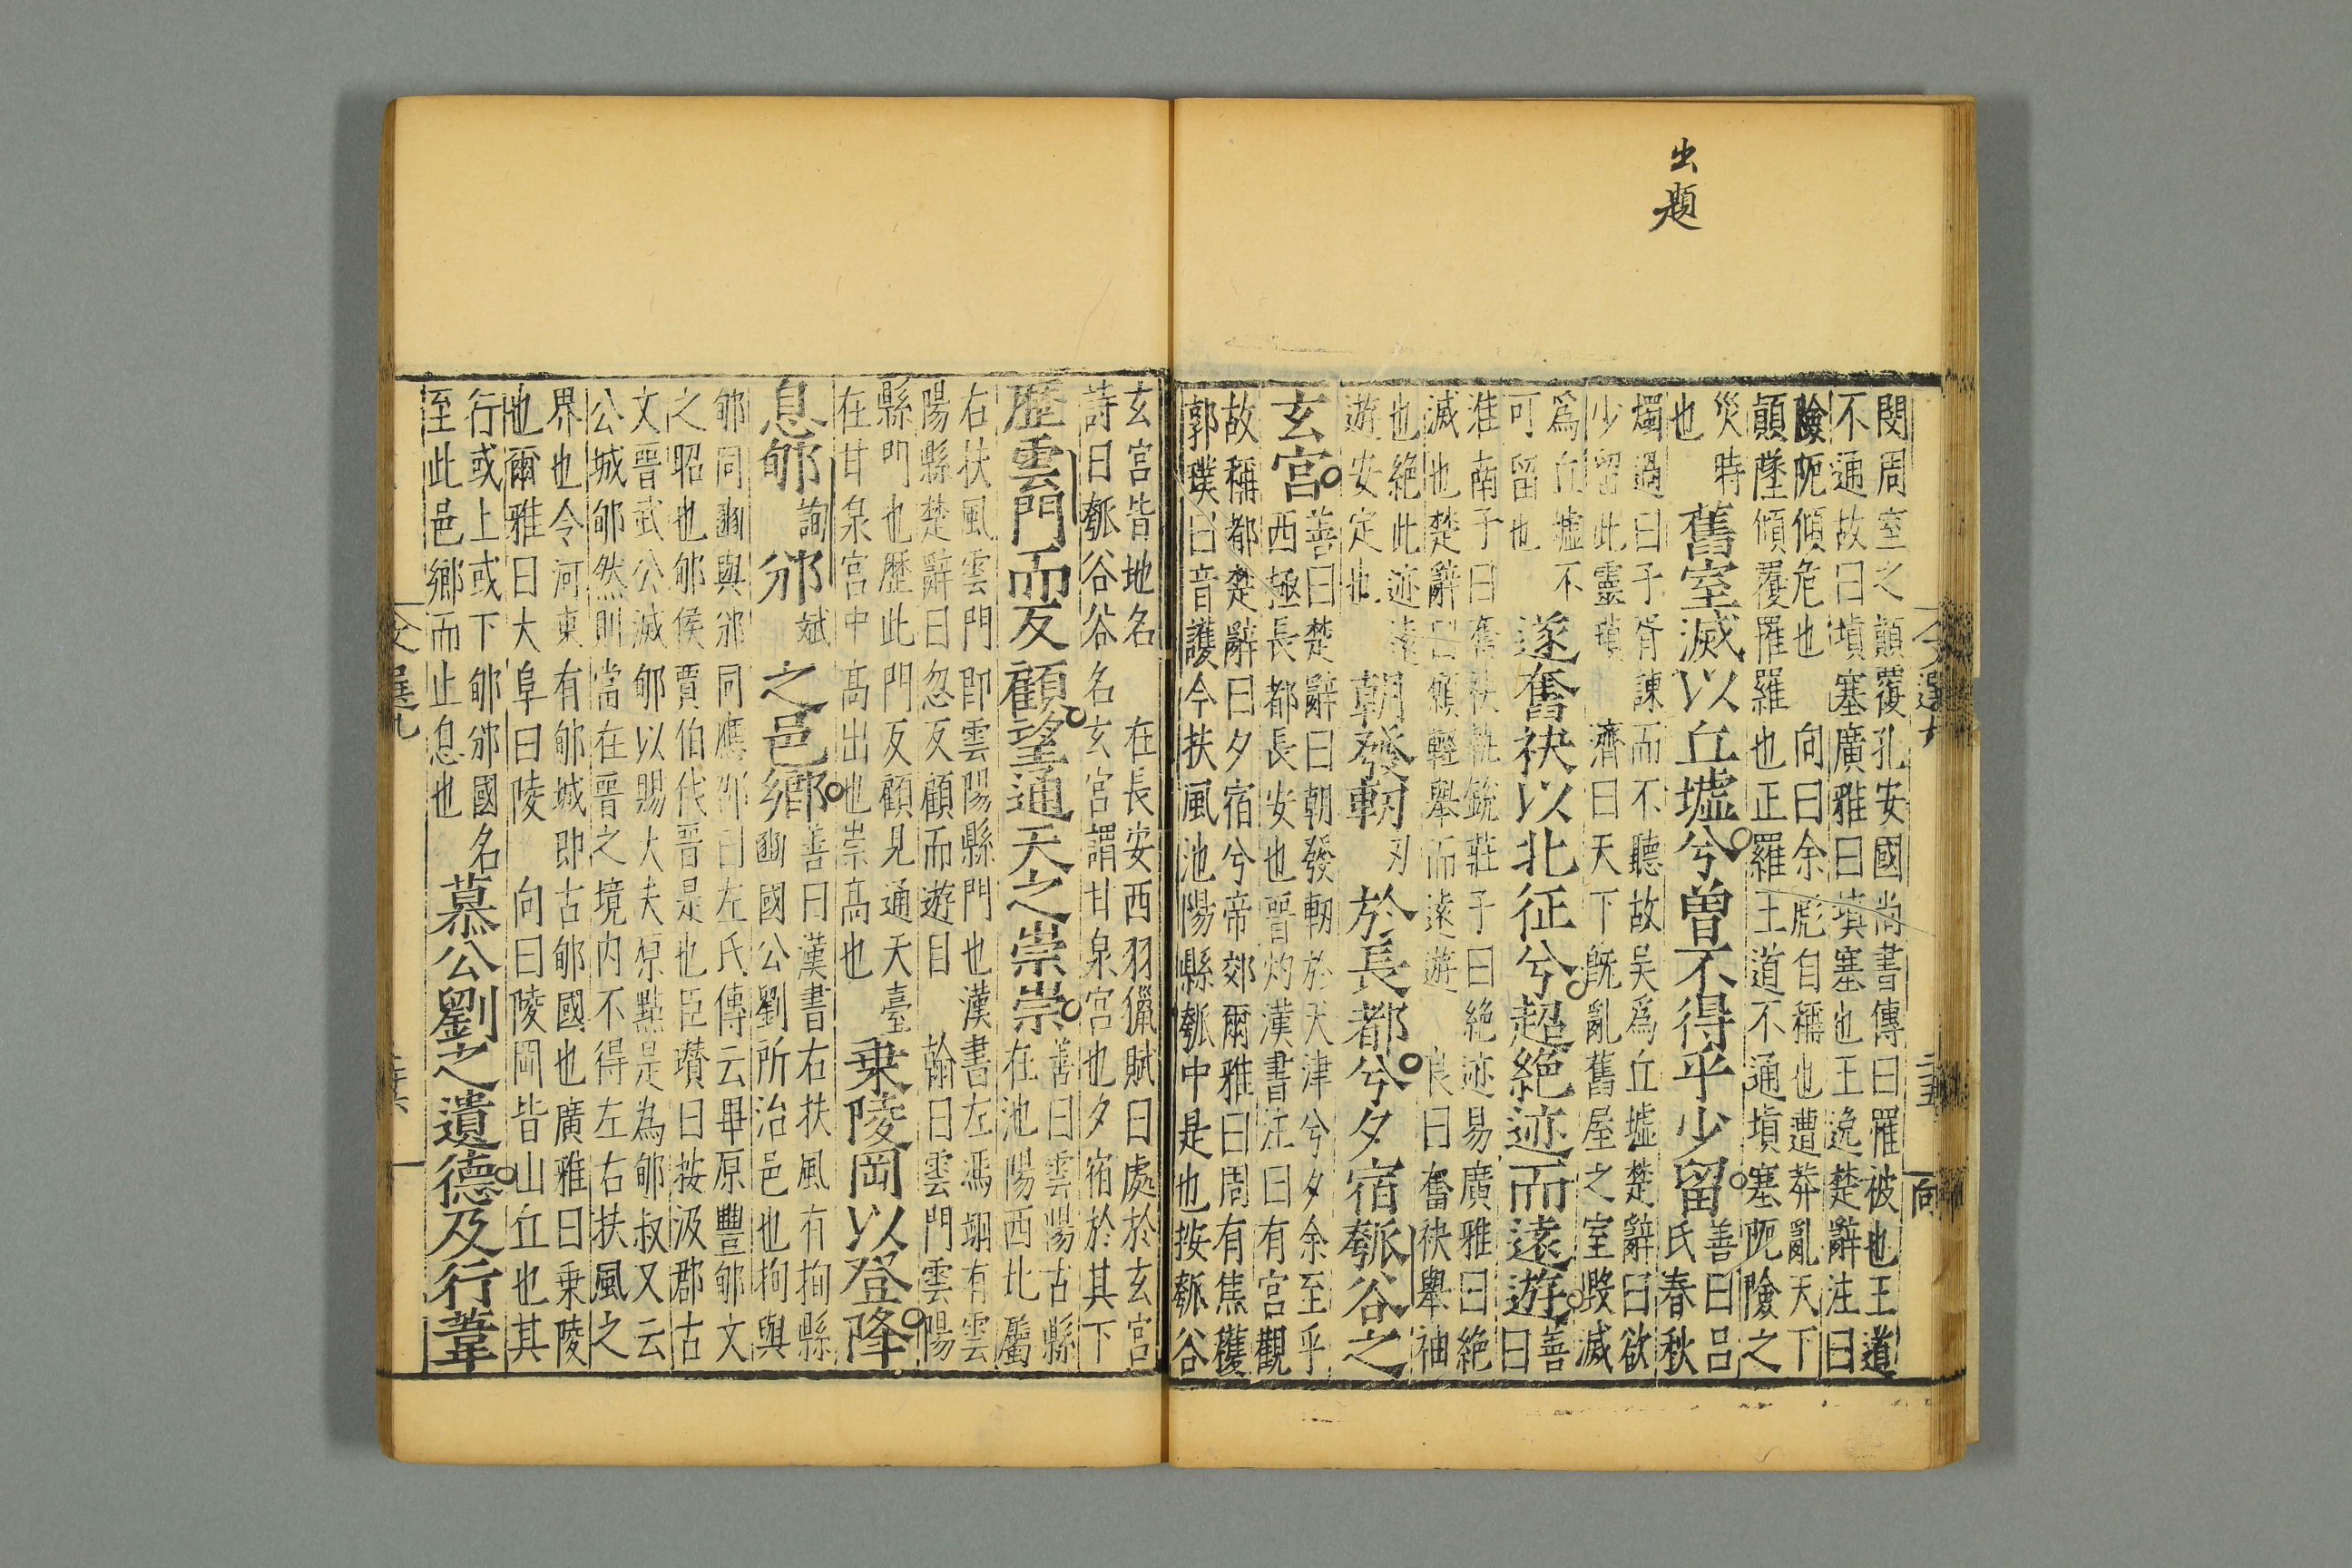 出題
文選九
二五
向
閔周室之顛覆孔安國尚書傳曰罹被也王道
不通故曰塡塞廣雅曰塡塞也王逸楚辭注曰
險阨傾危也 向曰余彪自稱也遭莽亂天下
顛墜傾覆罹羅也正羅王道不通塡塞阨險之
災時
也
舊室滅以丘墟兮曾不得乎少留
善曰呂
氏春秋
燭過曰子胥諫而不聽故吳爲丘墟楚辭曰欲
少留此靈瑣 濟曰天下旣亂舊屋之室毀滅
爲丘墟不
可留也
遂奮袂以北征兮超絶迹而遠遊
善
曰
淮南子曰奮袂執銳莊子曰絶迹易廣雅曰絶
滅也楚辭曰願輕舉而遠遊 良曰奮袂舉袖
也絶此迹遠
遊安定也
朝發軔刃於長都兮夕宿瓠谷之
玄宮
善曰楚辭曰朝發軔於天津兮夕余至乎
西極長都長安也晉灼漢書注曰有宮觀
故稱都楚辭曰夕宿兮帝郊爾雅曰周有焦穫
郭璞曰音護今扶風池陽縣瓠中是也按瓠谷
玄宮皆地名 在長安西羽獵賦曰處於玄宮
詩曰瓠谷谷名玄宮謂甘泉宮也夕宿於其下
歷雲門而反顧望通天之崇崇
善曰雲陽古縣
在池陽西北屬
右扶風雲門即雲陽縣門也漢書左馮翊有雲
陽縣楚辭曰忽反顧而遊目 翰曰雲門雲陽
縣門也歷此門反顧見通天臺
在甘泉宮中高出也崇高也
乗陵岡以登降
息郇詢邠斌之邑鄉
善曰漢書右扶風有栒縣
豳國公劉所治邑也栒與
郇同豳與邠同應劭曰左氏傳云畢原豐郇文
之昭也郇侯賈伯伐晉是也臣瓚曰按汲郡古
文晉武公滅郇以賜大夫原黯是為郇叔又云
公城郇然則當在晉之境内不得左右扶風之
界也今河東有郇城即古郇國也廣雅曰乗陵
也爾雅曰大阜曰陵 向曰陵岡皆山丘也其
行或上或下郇邠國名
至此邑鄉而止息也
慕公劉之遺德及行葦
文選九